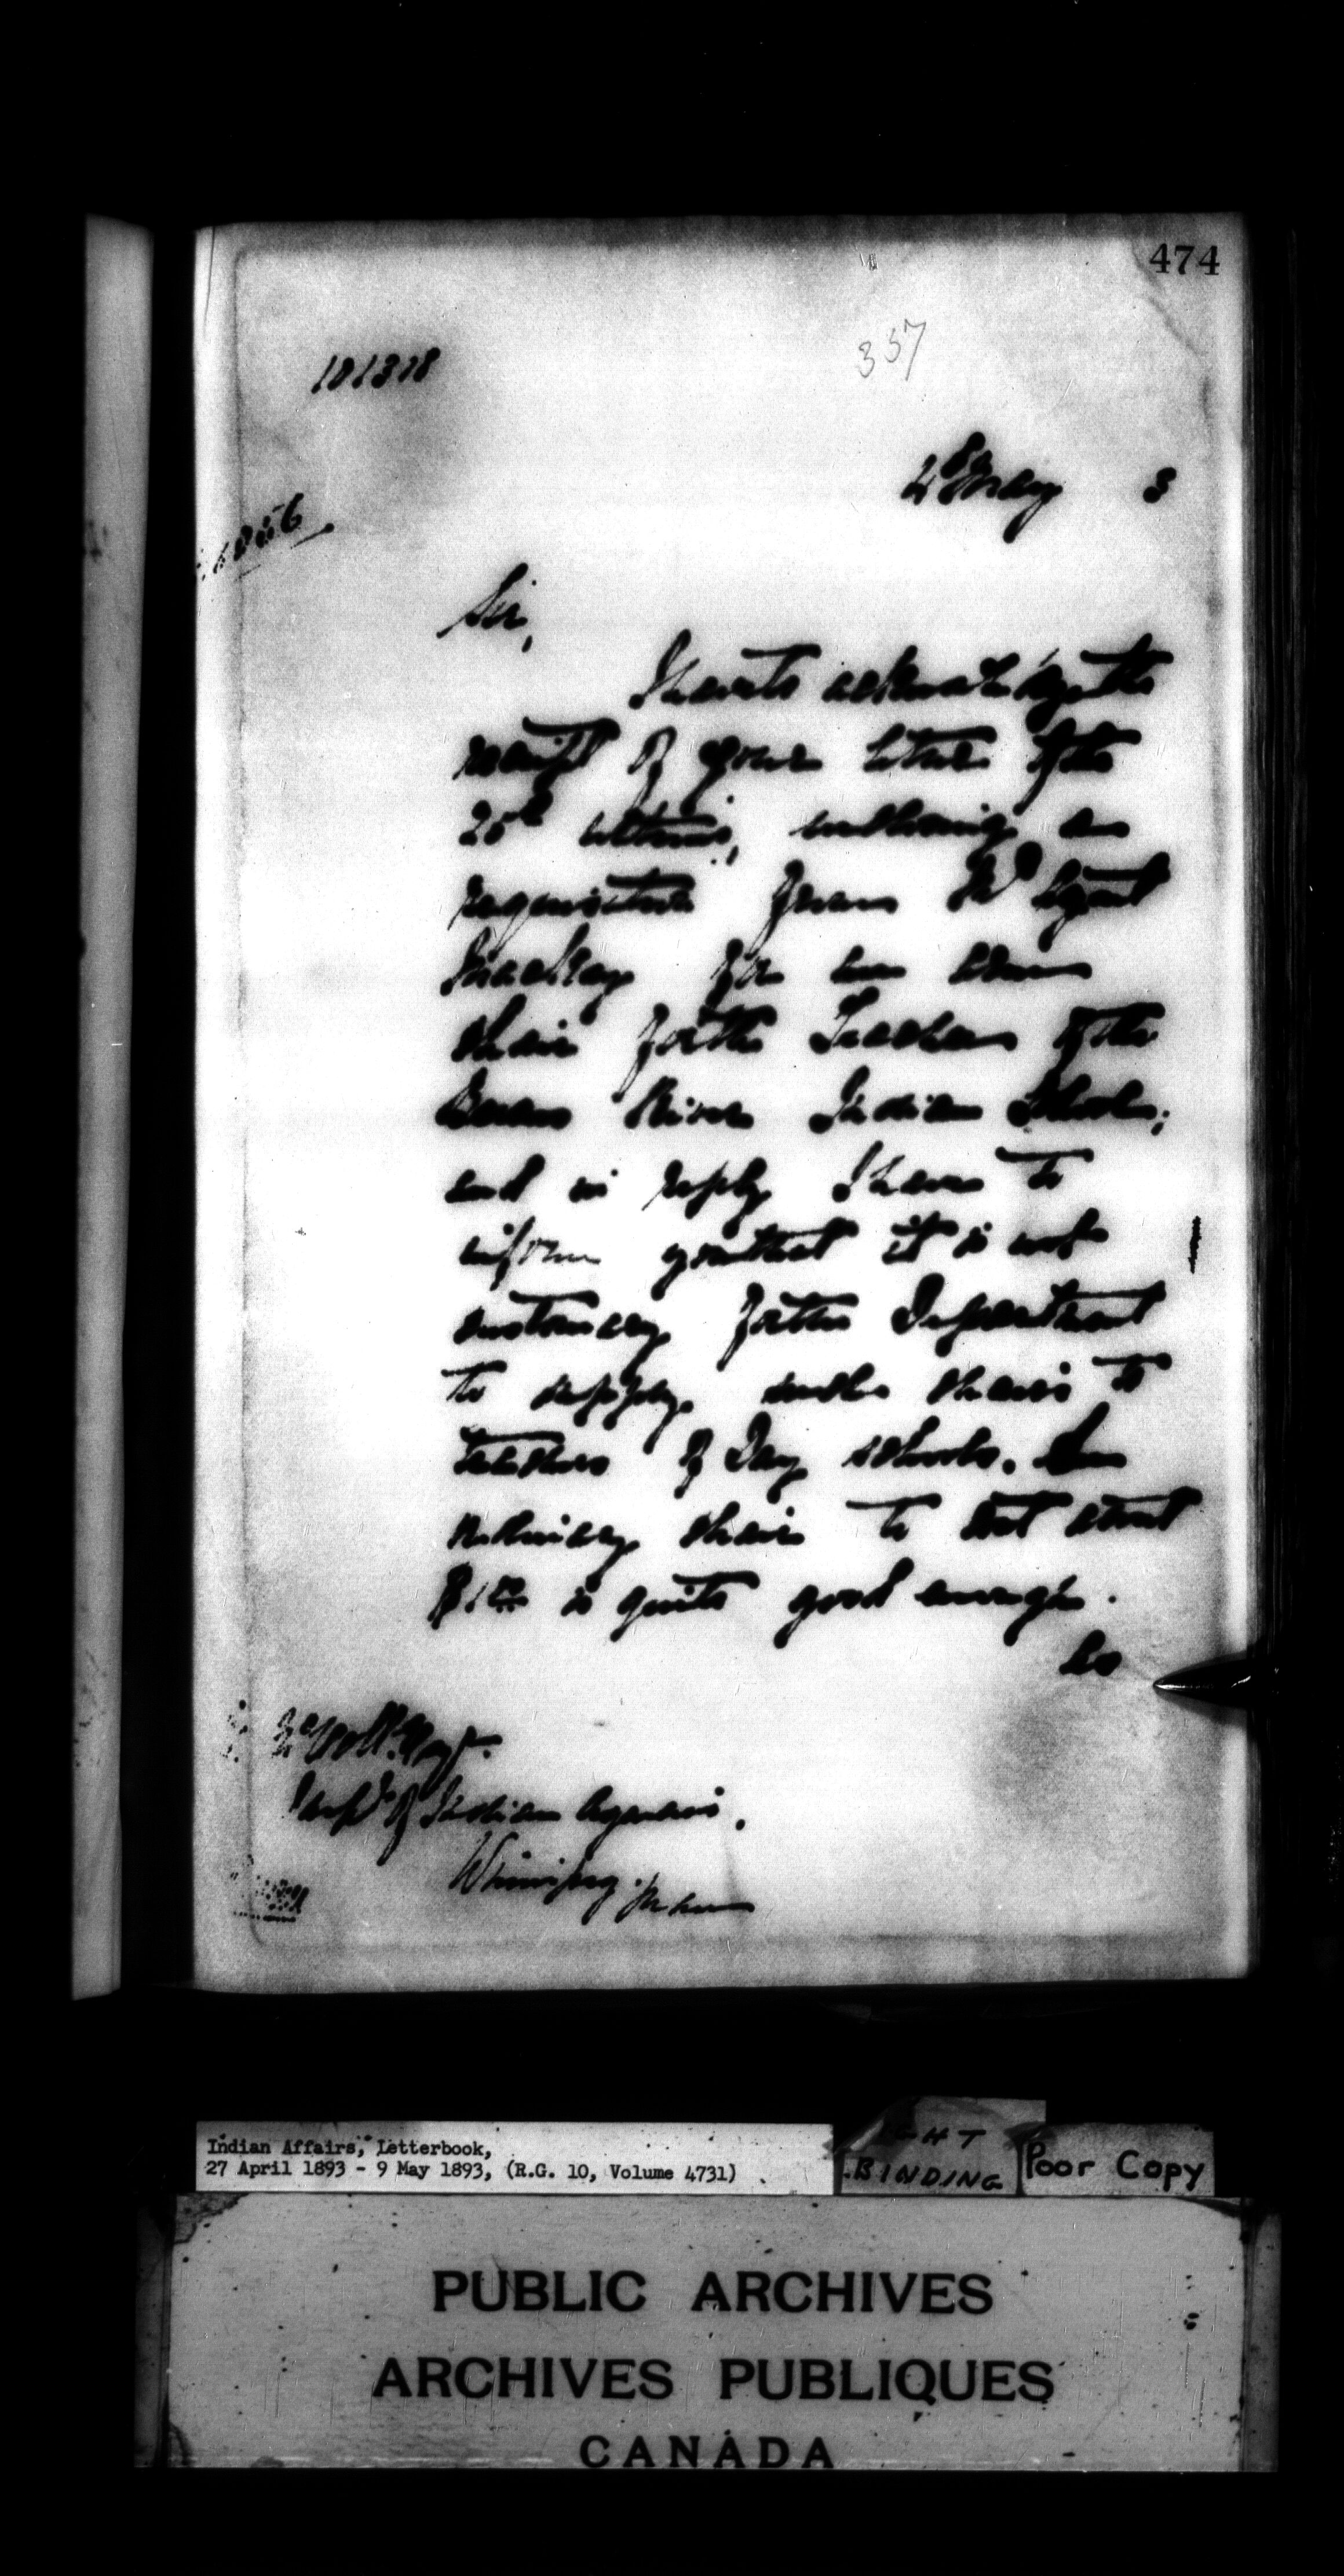 474
337
101318
4th May 3
Sir,
I have to acknowledge the
receipt of your letter of the
25th ultimo, enclosing a
requisition from Indn Agent
Mackay for an arm
chair for the Teacher of the
Berens River Indian School;
and in reply I have to
inform you that it is not
customary for the Department
to supply such chairs to
teachers of Day schools. An
ordinary chair to cost about
$1.00 is quite good enough.
So
Supt of Indian Agencies.
Winnipeg. Man
Indian Affairs, Letterbook,
27 April 1893 - 9 May 1893, (R.G. 10, Volume 4731)
BINDING
Poor Copy
PUBLIC ARCHIVES
ARCHIVES PUBLIQUES
CANADA